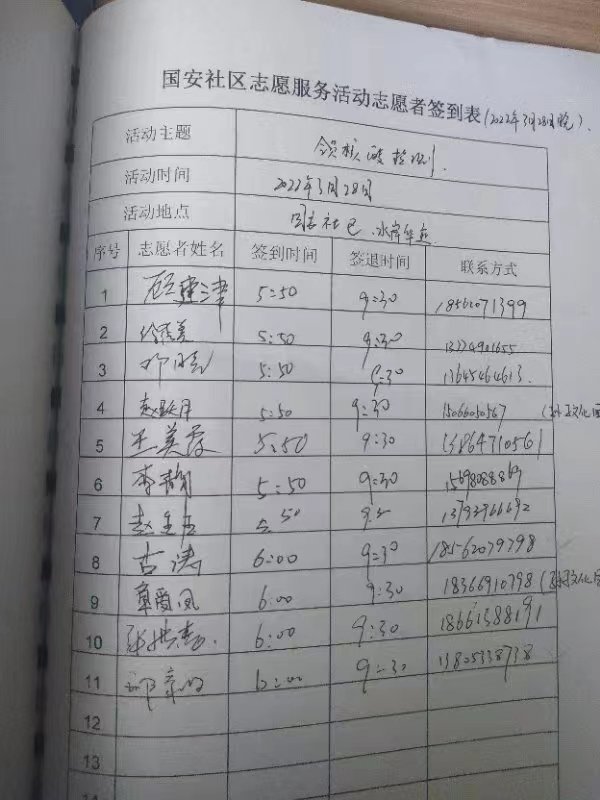 国安社区志愿服务活动志愿者签到表(2022年3月28日晚).
活动主题 全员核酸检测.
活动时间 2022年3月28日
活动地点 国安社区.水岸华庭
序号 志愿者姓名 签到时间 签退时间 联系方式
1 顾建津 5:50 9:30 18562071399
2 5:50 9:30 13224901655
3 邓晓 5:50 9:30 13645464613.
4 赵跃月 5:50 9:30
5 王美霞 5:50 9:30 13864710561
6 李静 5:50 9:30
7 赵 50 9: 13793966692
8 古涛 6:00 9:30 18562079798
9 章爱凤 6:00 9:30 18366910798
10 6:00 9:30 18661388191
11 6:00 9:30 13805338738
12
13